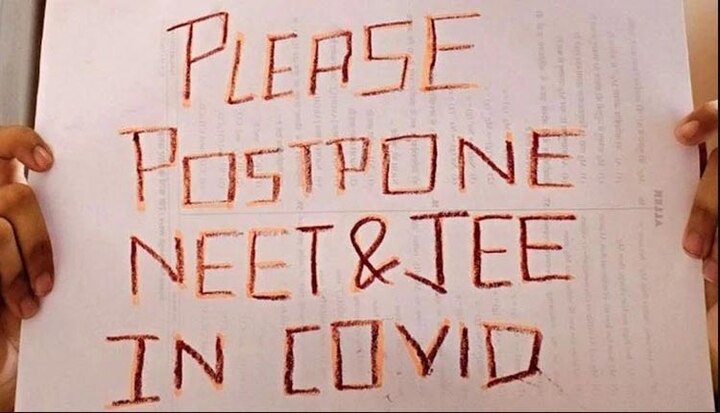 PLEASE
POSTPONE
NEET & JEE
IN COVID